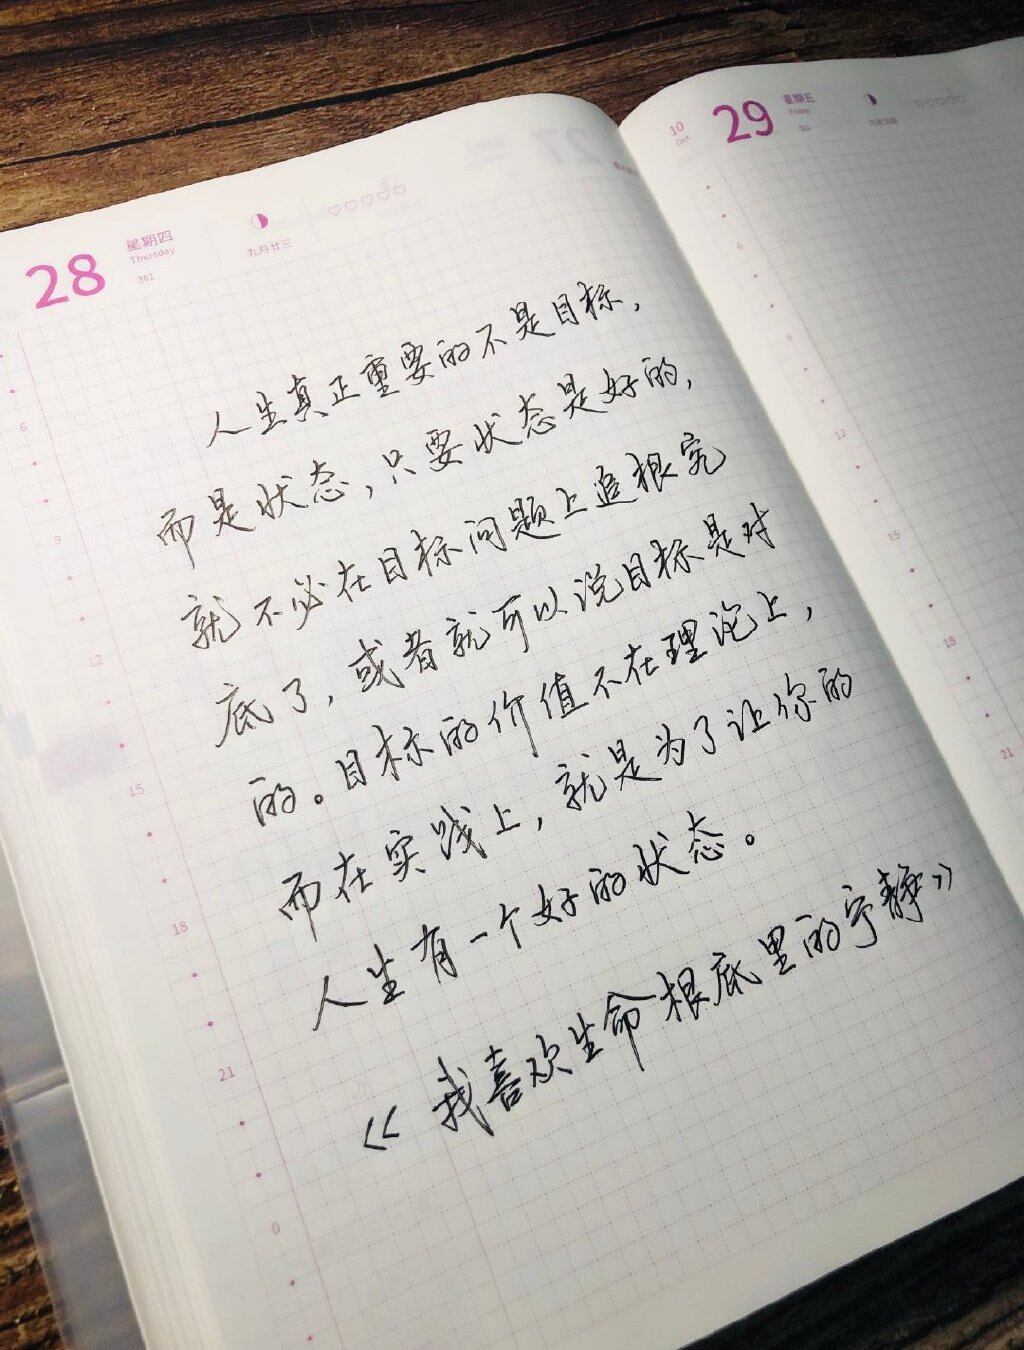 28 星期四
Thursday
301
九月廿三
人生真正重要的不是目标，
而是状态，只要状态是好的，
就不必在目标问题上追根究
底了，或者就可以说目标是对
的。目标的价值不在理论上，
而在实践上，就是为了让你的
人生有一个好的状态。
《我喜欢生命根底里的宁静》
6
9
12
15
18
21
0
10
Oct
29 星期五
Friday
6
9
12
15
18
21